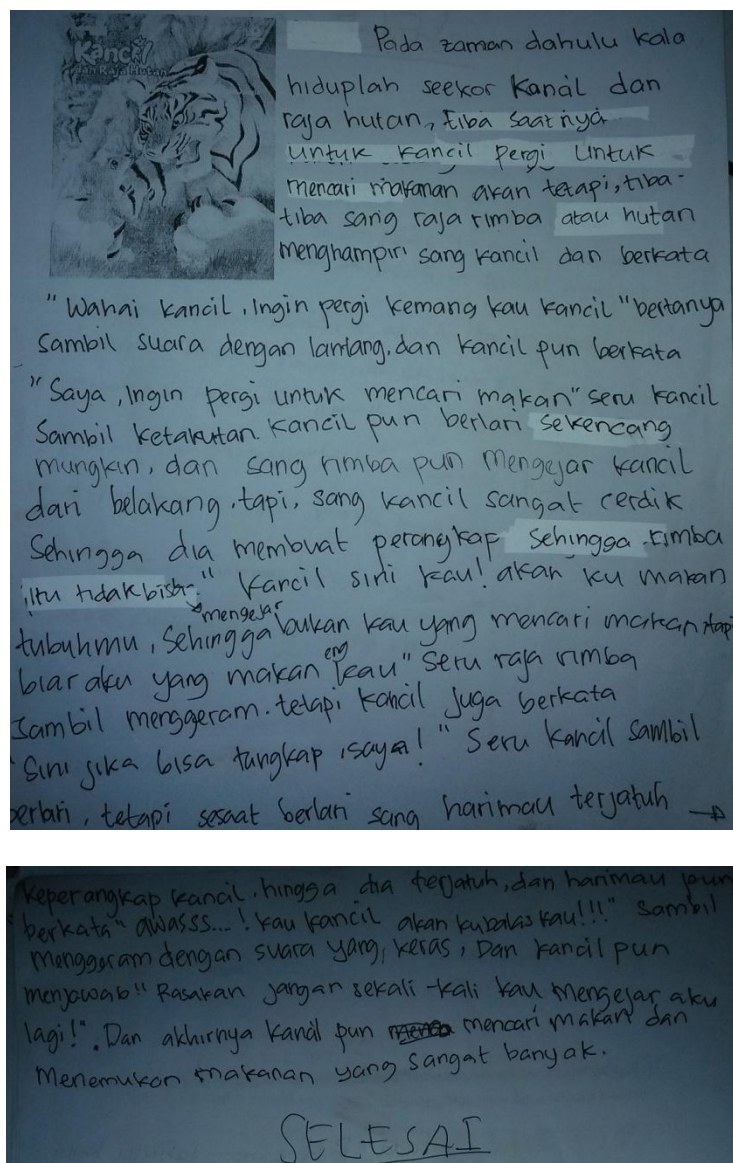 Kancil
dan Raja Hutan
Pada zaman dahulu kala
hiduplah seekor Kancil dan
raja hutan, tiba saatnya
untuk kancil pergi untuk
mencari makanan akan tetapi, tiba-
tiba sang raja rimba atau hutan
menghampiri sang kancil dan berkata
"Wahai kancil, Ingin pergi kemana kau kancil" bertanya
sambil suara dengan lantang, dan kancil pun berkata
"Saya, Ingin pergi untuk mencari makan" seru kancil
Sambil ketakutan. Kancil pun berlari sekencang
mungkin, dan sang rimba pun mengejar kancil
dari belakang. tapi, sang kancil sangat cerdik
Sehingga dia membuat perangkap sehingga rimba
itu tidak bisa. " Kancil sini kau! akan ku makan
mengejar
tubuhmu, Sehingga bukan kau yang mencari makan tapi
eng
biar aku yang makan kau" Seru raja rimba
Sambil menggeram. tetapi kancil juga berkata
"Sini jika bisa tangkap, saya!" Seru kancil sambil
berlari, tetapi sesaat berlari sang harimau terjatuh →
keperangkap kancil, hingga dia terjatuh, dan harimau pun
berkata "awasss...! kau kancil akan kubalas kau!!!" Sambil
menggeram dengan suara yang, keras, Dan kancil pun
menjawab "Rasakan jangan sekali-kali kau mengejar aku
lagi!". Dan akhirnya kancil pun mencari makan dan
Menemukan makanan yang sangat banyak.
SELESAI